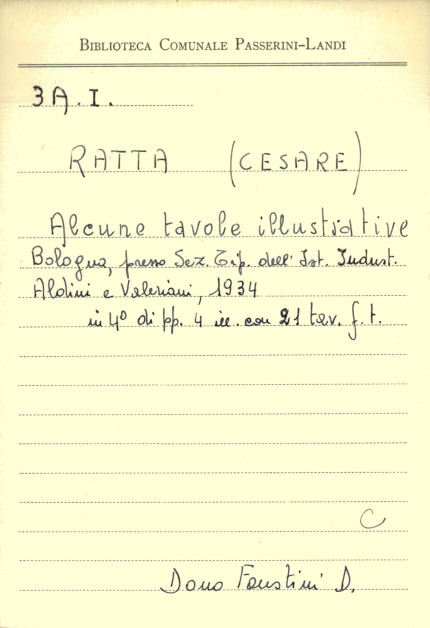 BIBLIOTECA COMUNALE PASSERINI-LANDI
3 A. I.
RATTA (CESARE)
Alcune tavole illustrative
Bologna, presso Sez. Tip. dell' Ist. Indust.
Aldini e Valeriani, 1934
in 4º di pp. 4 ill. con 21 tav. f. t.
C
Dono Faustini D.